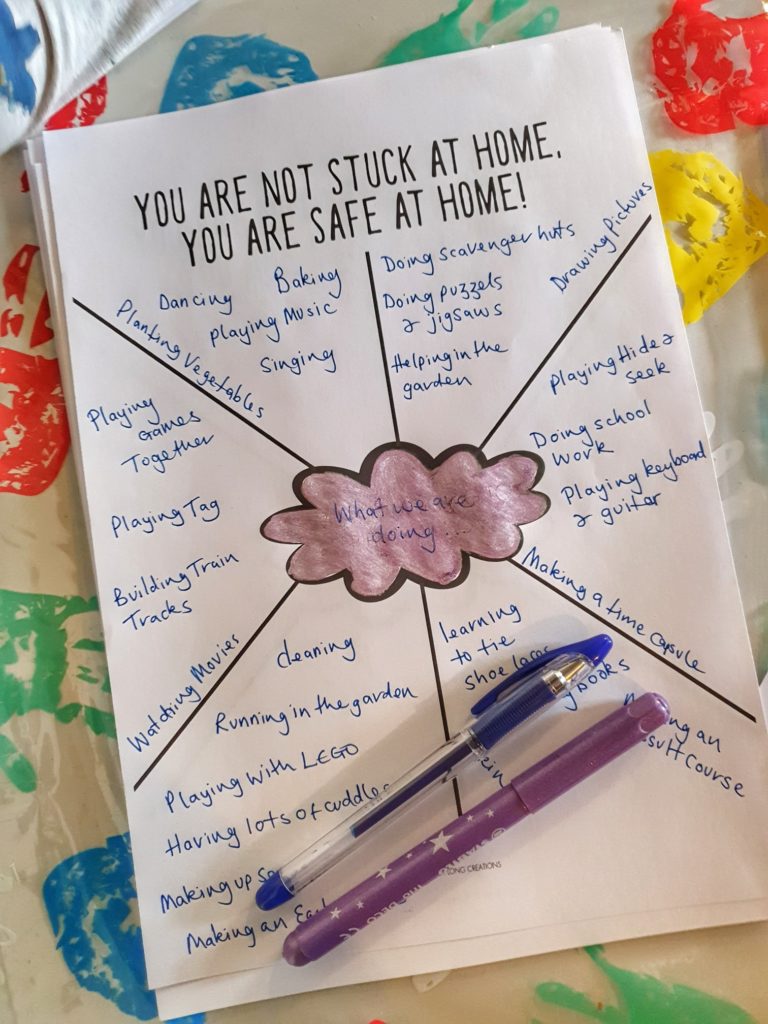 YOU ARE NOT STUCK AT HOME,
YOU ARE SAFE AT HOME!
Dancing
Baking
Playing Music
Singing
Planting Vegetables
Doing scavenger huts
Doing puzzels
& jigsaws
Helping in the
garden
Drawing Pictures
Playing Hide &
seek
Doing school
work
Playing keyboard
& guitar
Playing
Games
Together
Playing Tag
Building Train
Tracks
Watching Movies
What we are
doing...
Making a time capsule
cleaning
Running in the garden
Playing with LEGO
Having lots of cuddles
Making up
Making an
learning
to tie
shoe laces
Books
an
course
CREATIONS